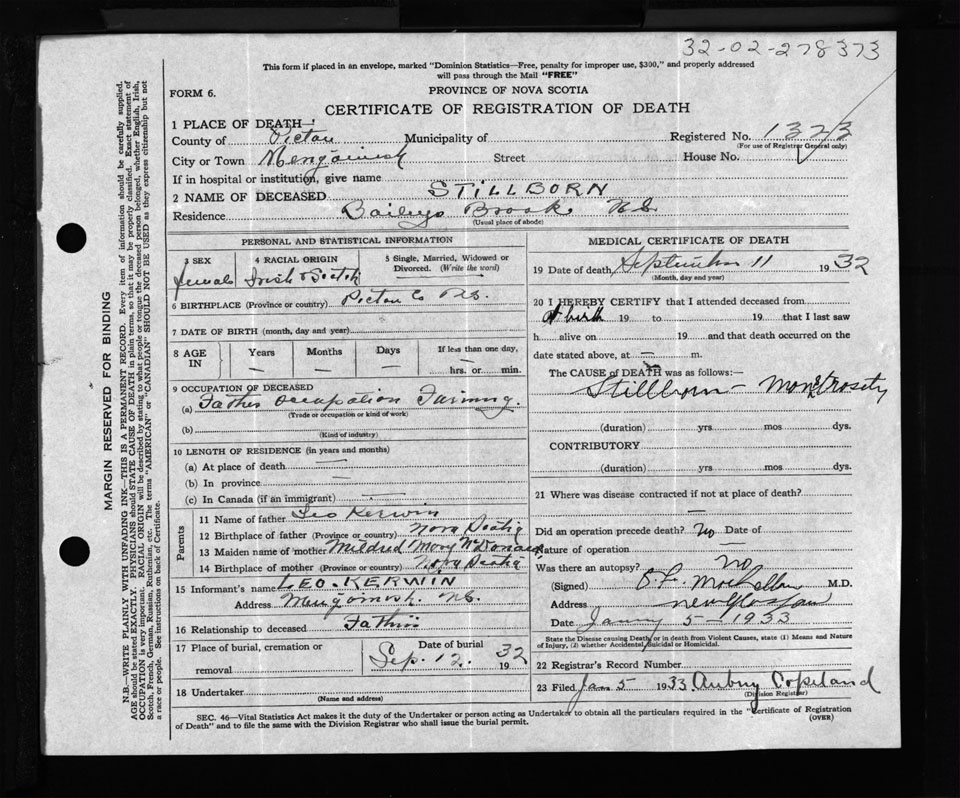 32-02-278373
This form if placed in an envelope, marked "Dominion Statistics—Free, penalty for improper use, $300," and properly addressed
will pass through the Mail "FREE"
FORM 6.
PROVINCE OF NOVA SCOTIA
CERTIFICATE OF REGISTRATION OF DEATH
1 PLACE OF DEATH—
County of Pictou Municipality of Registered No. 1373
(For use of Registrar General only)
City or Town Street House No.
If in hospital or institution, give name
2 NAME OF DECEASED STILLBORN
Residence Baileys Brook N.S.
(Usual place of abode)
PERSONAL AND STATISTICAL INFORMATION
3 SEX 4 RACIAL ORIGIN 5 Single, Married, Widowed or
Divorced. (Write the word)
Female Irish & Scotch
6 BIRTHPLACE (Province or country) Pictou Co N.S.
7 DATE OF BIRTH (month, day and year)
8 AGE IN Years Months Days If less than one day,
— — — — hrs. or min.
9 OCCUPATION OF DECEASED
(a) Father Occupation Farming.
(Trade or occupation or kind of work)
(b)
(Kind of industry)
10 LENGTH OF RESIDENCE (in years and months)
(a) At place of death —
(b) In province —
(c) In Canada (if an immigrant) —
Parents
11 Name of father Leo Kerwin
12 Birthplace of father (Province or country) Nova Scotia
13 Maiden name of mother Mildred Mary McDonald
14 Birthplace of mother (Province or country) Nova Scotia
15 Informant's name LEO. KERWIN
Address N.S.
16 Relationship to deceased Father
17 Place of burial, cremation or Date of burial
removal Sep. 12. 1932
18 Undertaker
(Name and address)
MEDICAL CERTIFICATE OF DEATH
19 Date of death September 11 1932
(Month, day and year)
20 I HEREBY CERTIFY that I attended deceased from
at birth 19 to 19 that I last saw
h alive on 19 and that death occurred on the
date stated above, at — m.
The CAUSE of DEATH was as follows:
Stillborn — Monstrosity
(duration) yrs mos dys.
CONTRIBUTORY
(duration) yrs mos dys.
21 Where was disease contracted if not at place of death?
Did an operation precede death? No Date of
Nature of operation —
Was there an autopsy? no
(Signed) M.D.
Address New Glasgow
Date 5 — 1933
State the Disease causing Death, or in death from Violent Causes, state (1) Means and Nature
of Injury, (2) whether Accidental, Suicidal or Homicidal.
22 Registrar's Record Number
23 Filed Jan 5 1933 Aubrey Copeland
(Division Registrar)
SEC. 46—Vital Statistics Act makes it the duty of the Undertaker or person acting as Undertaker to obtain all the particulars required in the "Certificate of Registration
of Death" and to file the same with the Division Registrar who shall issue the burial permit.
(OVER)
MARGIN RESERVED FOR BINDING
N.B.—WRITE PLAINLY WITH UNFADING INK—THIS IS A PERMANENT RECORD. Every item of information should be carefully supplied.
AGE should be stated EXACTLY. PHYSICIANS should STATE CAUSE OF DEATH in plain terms, so that it may be properly classified. Exact statement of
OCCUPATION is very important. RACIAL ORIGIN will be described by stating to what people or tongue the deceased person belonged, whether English, Irish,
Scotch, French, German, Russian, Ruthenian, etc. The terms "AMERICAN" or "CANADIAN" SHOULD NOT BE USED as they express citizenship but not
a race or people. See instructions on back of Certificate.